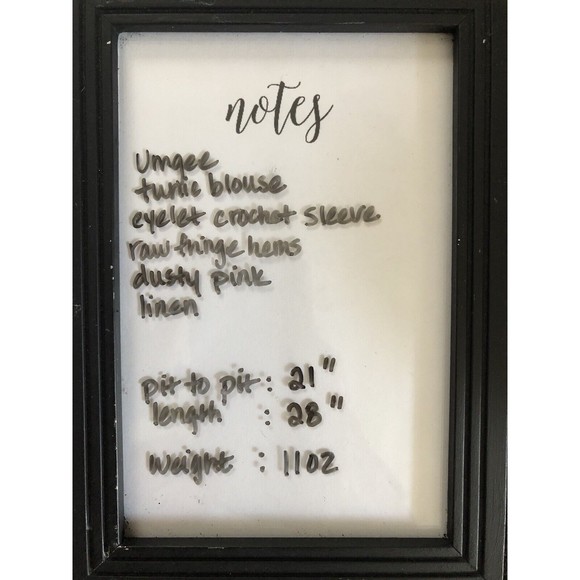 notes
Umgee
tunic blouse
eyelet crochet sleeve
raw fringe hems
dusty pink
linen
pit to pit : 21"
length : 28"
weight : 11oz